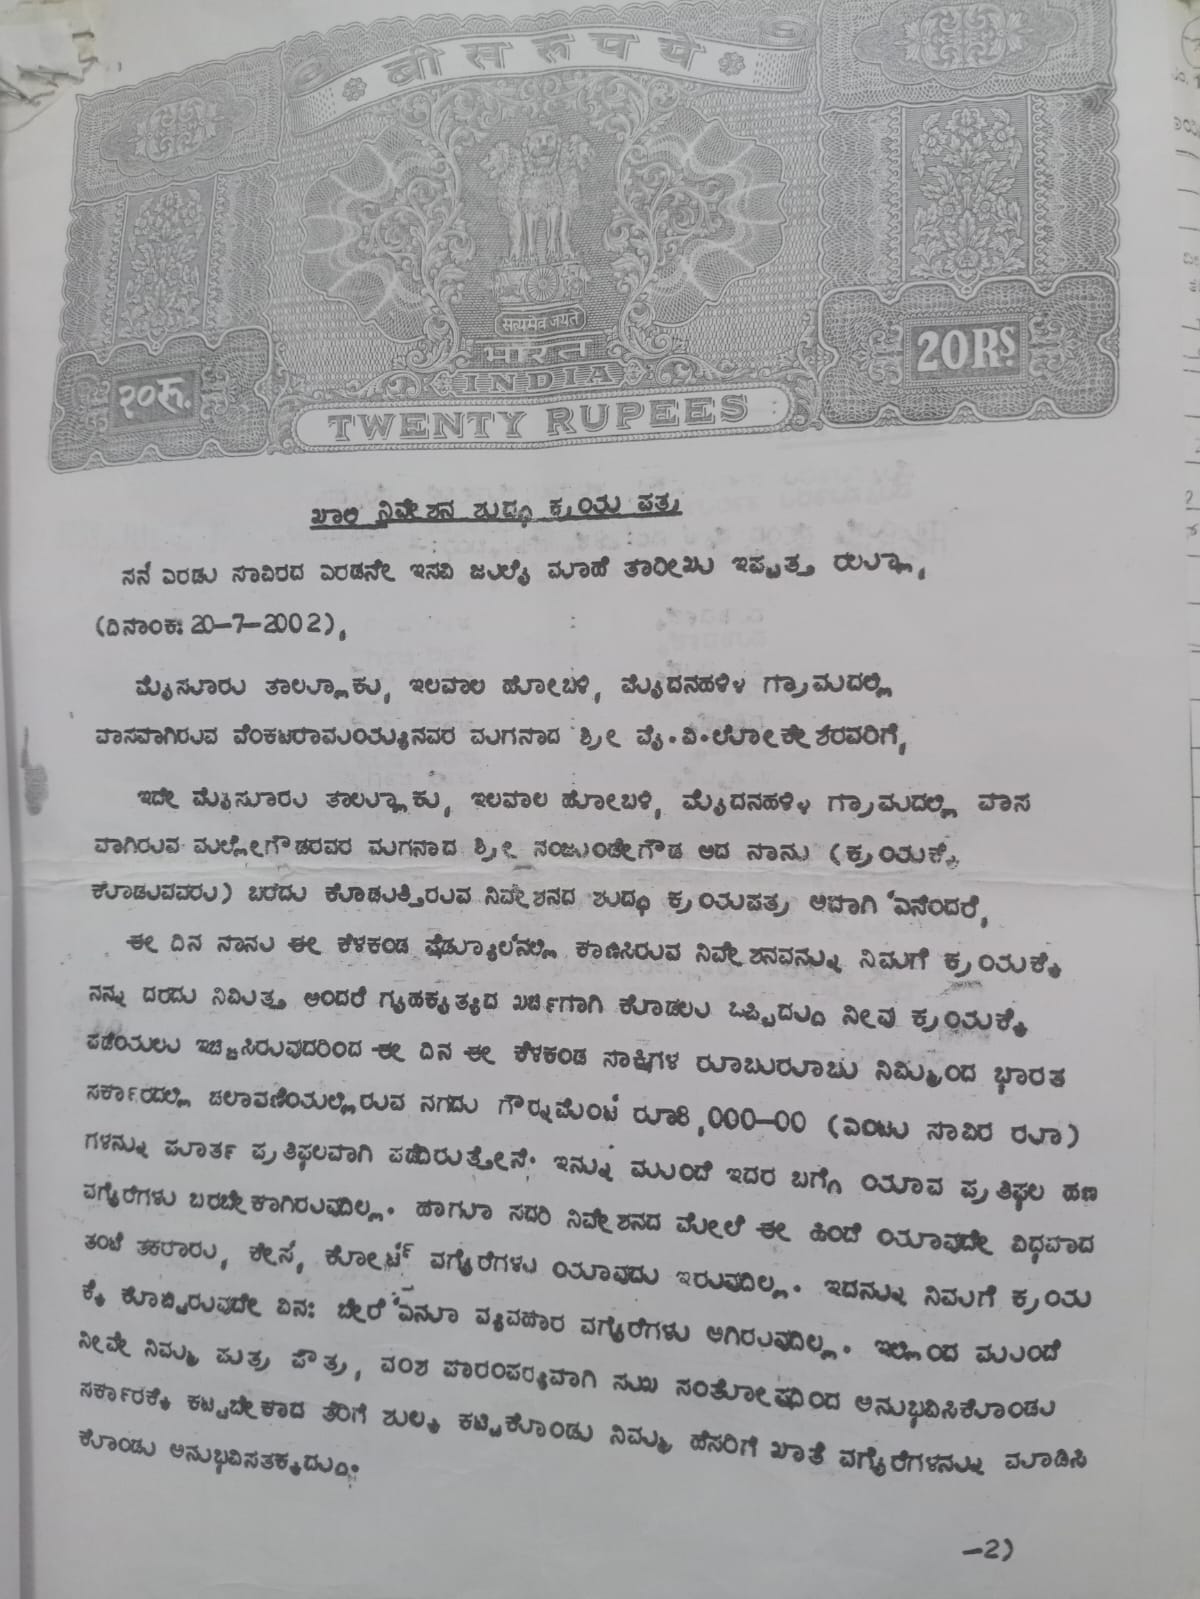 बीस रुपये
सत्यमेव जयते
भारत
INDIA
२०रू.
20RS.
TWENTY RUPEES
ಖಾಲಿ ನಿವೇಶನ ಶುದ್ಧ ಕ್ರಯ ಪತ್ರ
ಸನೆ ಎರಡು ಸಾವಿರದ ಎರಡನೇ ಇಸವಿ ಜುಲೈ ಮಾಹೆ ತಾರೀಖು ಇಪ್ಪತ್ತ ರಲ್ಲೂ,
(ದಿನಾಂಕ: 20-7-2002),
ಮೈಸೂರು ತಾಲ್ಲೂಕು, ಇಲವಾಲ ಹೋಬಳಿ, ಮೈದನಹಳ್ಳಿ ಗ್ರಾಮದಲ್ಲಿ
ವಾಸವಾಗಿರುವ ವೆಂಕಟರಾಮಯ್ಯನವರ ಮಗನಾದ ಶ್ರೀ ವೈ.ವಿ.ಲೋಕೇಶರವರಿಗೆ,
ಇದೇ ಮೈಸೂರು ತಾಲ್ಲೂಕು, ಇಲವಾಲ ಹೋಬಳಿ, ಮೈದನಹಳ್ಳಿ ಗ್ರಾಮದಲ್ಲಿ ವಾಸ
ವಾಗಿರುವ ಮಲ್ಲೇಗೌಡರವರ ಮಗನಾದ ಶ್ರೀ ನಂಜುಂಡೇಗೌಡ ಆದ ನಾನು (ಕ್ರಯಕ್ಕೆ
ಕೊಡುವವರು) ಬರೆದು ಕೊಡುತ್ತಿರುವ ನಿವೇಶನದ ಶುದ್ಧ ಕ್ರಯಪತ್ರ ಅದಾಗಿ ಏನೆಂದರೆ,
ಈ ದಿನ ನಾನು ಈ ಕೆಳಕಂಡ ಷೆಡ್ಯೂಲಿನಲ್ಲಿ ಕಾಣಿಸಿರುವ ನಿವೇಶನವನ್ನು ನಿಮಗೆ ಕ್ರಯಕ್ಕೆ
ನನ್ನ ದರದು ನಿಮಿತ್ತ ಅಂದರೆ ಗೃಹಕೃತ್ಯದ ಖರ್ಚಿಗಾಗಿ ಕೊಡಲು ಒಪ್ಪಿದ್ದು ನೀವು ಕ್ರಯಕ್ಕೆ
ಪಡೆಯಲು ಇಚ್ಚಿಸಿರುವುದರಿಂದ ಈ ದಿನ ಈ ಕೆಳಕಂಡ ಸಾಕ್ಷಿಗಳ ರೂಬುರೂಬು ನಿಮ್ಮಿಂದ ಭಾರತ
ಸರ್ಕಾರದಲ್ಲಿ ಚಲಾವಣೆಯಲ್ಲಿರುವ ನಗದು ಗೌರ್ನಮೆಂಟ್ ರೂ8,000-00 (ಎಂಟು ಸಾವಿರ ರೂ)
ಗಳನ್ನು ಪೂರ್ತ ಪ್ರತಿಫಲವಾಗಿ ಪಡೆದಿರುತ್ತೇನೆ. ಇನ್ನು ಮುಂದೆ ಇದರ ಬಗ್ಗೆ ಯಾವ ಪ್ರತಿಫಲ ಹಣ
ವಗೈರೆಗಳು ಬರಬೇಕಾಗಿರುವುದಿಲ್ಲ. ಹಾಗೂ ಸದರಿ ನಿವೇಶನದ ಮೇಲೆ ಈ ಹಿಂದೆ ಯಾವುದೇ ವಿಧವಾದ
ತಂಟೆ ತಕರಾರು, ಕೇಸ್, ಕೋರ್ಟ್ ವಗೈರೆಗಳು ಯಾವುದು ಇರುವುದಿಲ್ಲ. ಇದನ್ನು ನಿಮಗೆ ಕ್ರಯ
ಕ್ಕೆ ಕೊಟ್ಟಿರುವುದೇ ವಿನಃ ಬೇರೆ ಏನೂ ವ್ಯವಹಾರ ವಗೈರೆಗಳು ಆಗಿರುವುದಿಲ್ಲ. ಇಲ್ಲಿಂದ ಮುಂದೆ
ನೀವೇ ನಿಮ್ಮ ಪುತ್ರ ಪೌತ್ರ, ವಂಶ ಪಾರಂಪರ್ಯವಾಗಿ ಸುಖ ಸಂತೋಷದಿಂದ ಅನುಭವಿಸಿಕೊಂಡು
ಸರ್ಕಾರಕ್ಕೆ ಕಟ್ಟಬೇಕಾದ ತೆರಿಗೆ ಶುಲ್ಕ ಕಟ್ಟಿಕೊಂಡು ನಿಮ್ಮ ಹೆಸರಿಗೆ ಖಾತೆ ವಗೈರೆಗಳನ್ನು ಮಾಡಿಸಿ
ಕೊಂಡು ಅನುಭವಿಸತಕ್ಕದ್ದು.
-2)